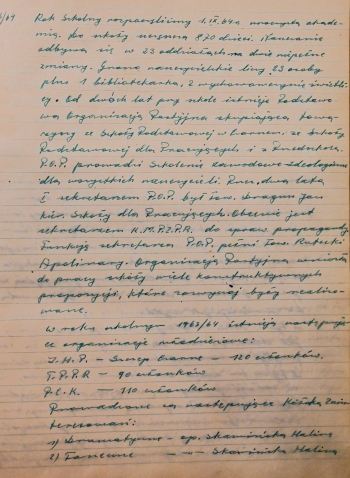 3/64 Rok Szkolny rozpoczęliśmy 1.IX.64r. uroczystą akade-
mią. Do szkoły uczęszcza 870 dzieci. Nauczanie
odbywa się w 23 oddziałach na dwie niepełne
zmiany. Grono nauczycielskie liczy 23 osoby
plus 1 bibliotekarka, 2 wychowawczynie świetli-
cy. Od dwóch lat przy szkole istnieje Podstawo
wa Organizacja Partyjna skupiająca towa-
rzyszy ze Szkoły Podstawowej w ze Szkoły
Podstawowej dla Pracujących i z Przedszkola.
P.O.P. prowadzi Szkolenie zawodowo-ideologiczne
dla wszystkich nauczycieli. Przez dwa lata
I sekretarzem P.O.P. był tow. Dragun Jan
kier. Szkoły dla Pracujących. Obecnie jest
sekretarzem K.M.P.Z.P.R. do spraw propagandy
Funkcję sekretarza P.O.P. pełni tow. Rutecki
Apolinary. Organizacja Partyjna wniosła
do pracy szkoły wiele konstruktywnych
propozycji, które zostały realizo-
wane.
W roku szkolnym 1963/64 istnieją następują-
ce organizacje młodzieżowe:
Z.H.P. - - 120 członków.
T.P.P.R - 90 członków
P.C.K. - 110 członków
Prowadzone są następujące Kółka Zain
teresowań:
1) Dramatyczne - op. Skowińska Halina
2) Taneczne - " - Skowińska Halina